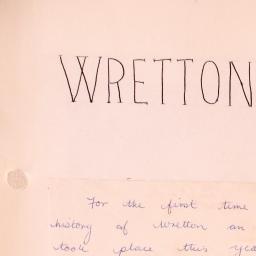 WRETTON
For the first time
history of Wretton an
took place this yea